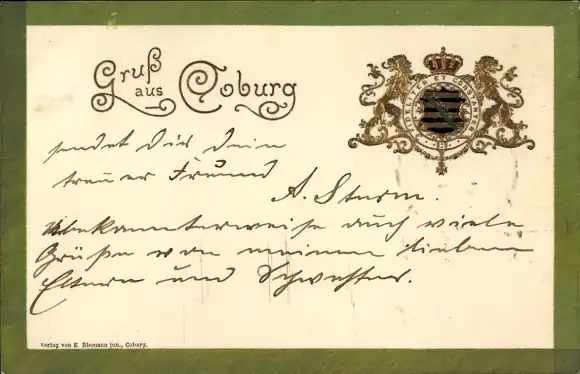 Gruß
aus Coburg
FIDELITER ET CONSTANTER
sendet dir dein
treuer Freund
A. Sturm.
Unbekannterweise auch viele
Grüße von meinen lieben
Eltern und Schwester.
Verlag von E. Riemann jun., Coburg.